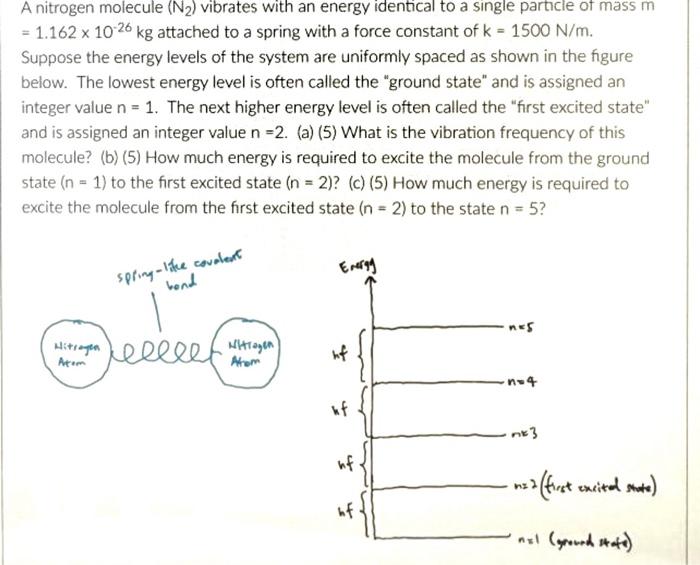 A nitrogen molecule (N₂) vibrates with an energy identical to a single particle of mass m
= 1.162 x 10⁻²⁶ kg attached to a spring with a force constant of k = 1500 N/m.
Suppose the energy levels of the system are uniformly spaced as shown in the figure
below. The lowest energy level is often called the "ground state" and is assigned an
integer value n = 1. The next higher energy level is often called the "first excited state"
and is assigned an integer value n =2. (a) (5) What is the vibration frequency of this
molecule? (b) (5) How much energy is required to excite the molecule from the ground
state (n = 1) to the first excited state (n = 2)? (c) (5) How much energy is required to
excite the molecule from the first excited state (n = 2) to the state n = 5?
spring-like covalent
bond
Nitrogen
Atom
Nitrogen
Atom
Energy
n=5
hf
n=4
hf
n=3
hf
n=2 (first excited state)
hf
n=1 (ground state)